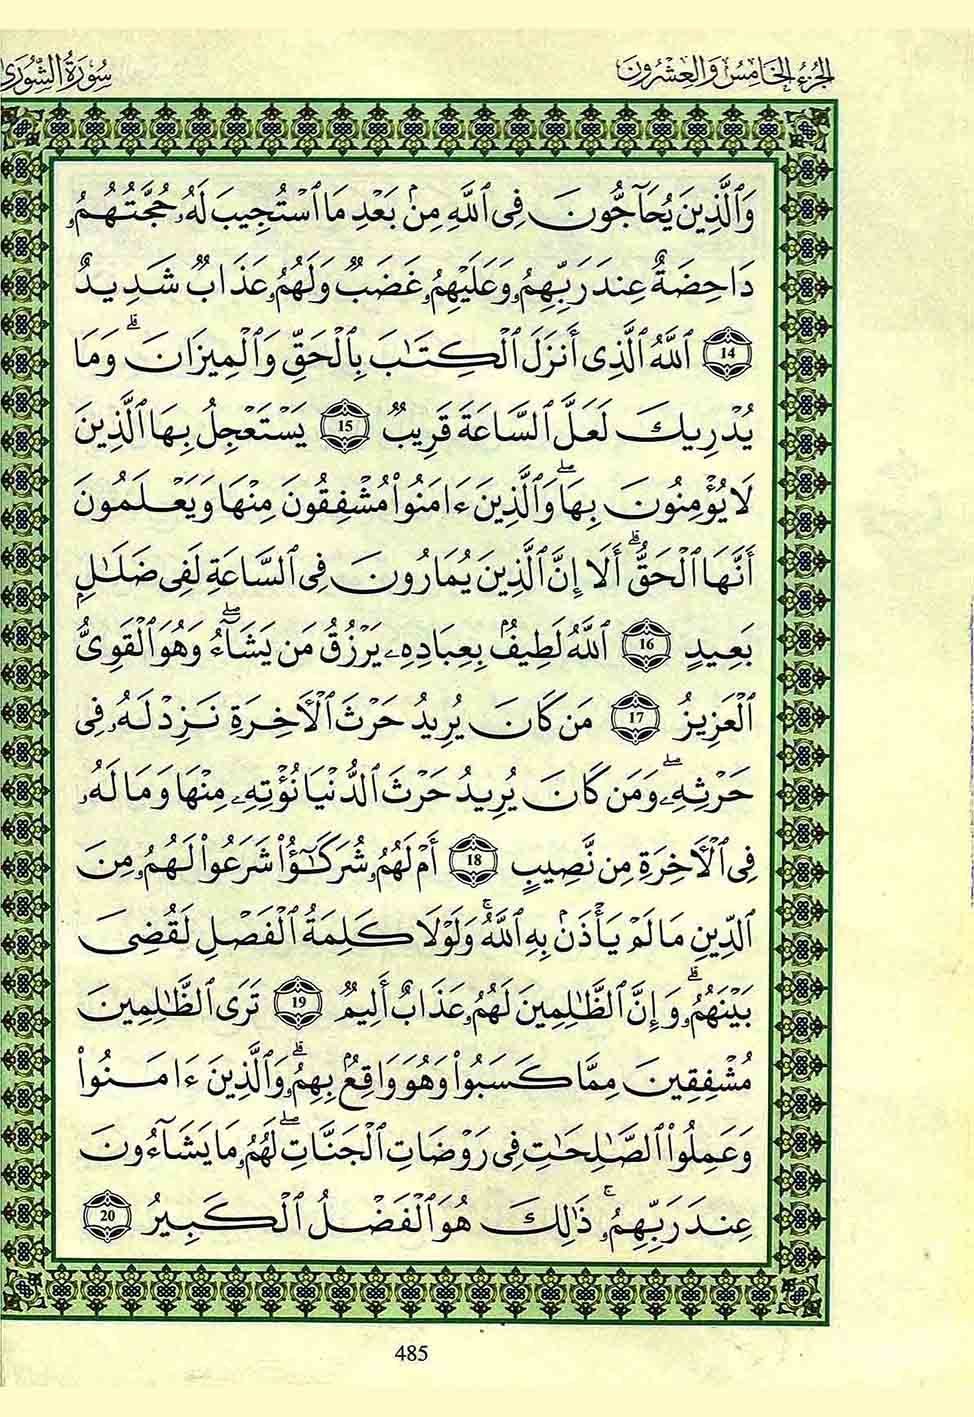 الجزء الخامس والعشرون
سورة الشورى
وَٱلَّذِينَ يُحَآجُّونَ فِى ٱللَّهِ مِنۢ بَعْدِ مَا ٱسْتُجِيبَ لَهُۥ حُجَّتُهُمُۥ
دَاحِضَةٌ عِندَ رَبِّهِمُۥ وَعَلَيْهِمُۥ غَضَبٌ وَلَهُمُۥ عَذَابٌ شَدِيدٌ
14 ٱللَّهُ ٱلَّذِى أَنزَلَ ٱلْكِتَٰبَ بِٱلْحَقِّ وَٱلْمِيزَانَ ۗ وَمَا
يُدْرِيكَ لَعَلَّ ٱلسَّاعَةَ قَرِيبٌ 15 يَسْتَعْجِلُ بِهَا ٱلَّذِينَ
لَا يُؤْمِنُونَ بِهَا ۖ وَٱلَّذِينَ ءَامَنُوا۟ مُشْفِقُونَ مِنْهَا وَيَعْلَمُونَ
أَنَّهَا ٱلْحَقُّ ۗ أَلَا إِنَّ ٱلَّذِينَ يُمَارُونَ فِى ٱلسَّاعَةِ لَفِى ضَلَٰلٍ
بَعِيدٍ 16 ٱللَّهُ لَطِيفٌۢ بِعِبَادِهِۦ يَرْزُقُ مَن يَشَآءُ ۖ وَهُوَ ٱلْقَوِىُّ
ٱلْعَزِيزُ 17 مَن كَانَ يُرِيدُ حَرْثَ ٱلْأَخِرَةِ نَزِدْ لَهُۥ فِى
حَرْثِهِۦ ۖ وَمَن كَانَ يُرِيدُ حَرْثَ ٱلدُّنْيَا نُؤْتِهِۦ مِنْهَا وَمَا لَهُۥ
فِى ٱلْأَخِرَةِ مِن نَّصِيبٍ 18 أَمْ لَهُمُۥ شُرَكَٰٓؤُا۟ شَرَعُوا۟ لَهُمُۥ مِنَ
ٱلدِّينِ مَا لَمْ يَأْذَنۢ بِهِ ٱللَّهُ ۚ وَلَوْلَا كَلِمَةُ ٱلْفَصْلِ لَقُضِىَ
بَيْنَهُمُۥ ۗ وَإِنَّ ٱلظَّٰلِمِينَ لَهُمُۥ عَذَابٌ أَلِيمٌ 19 تَرَى ٱلظَّٰلِمِينَ
مُشْفِقِينَ مِمَّا كَسَبُوا۟ وَهُوَ وَاقِعٌۢ بِهِمُۥ ۗ وَٱلَّذِينَ ءَامَنُوا۟
وَعَمِلُوا۟ ٱلصَّٰلِحَٰتِ فِى رَوْضَاتِ ٱلْجَنَّاتِ ۖ لَهُمُۥ مَا يَشَآءُونَ
عِندَ رَبِّهِمُۥ ۚ ذَٰلِكَ هُوَ ٱلْفَضْلُ ٱلْكَبِيرُ 20
485